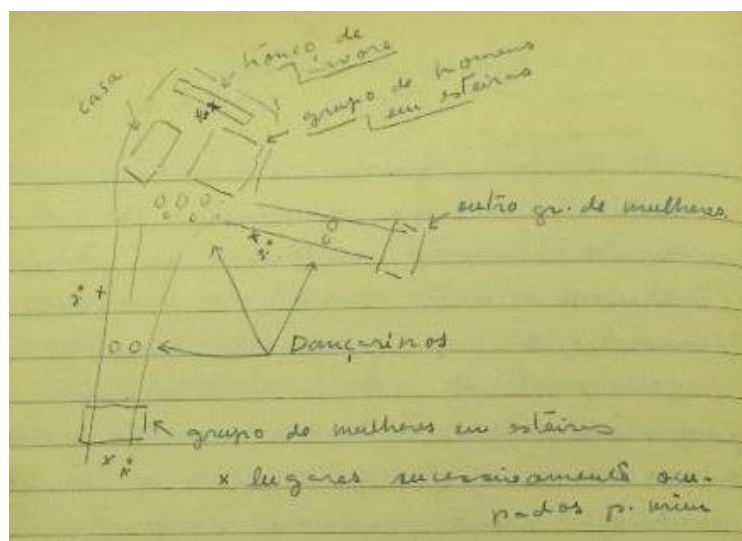 tronco de
árvore
casa
grupo de homens
em esteiras
outro gr. de mulheres
3º x
2º x
Dançarinos
grupo de mulheres em esteiras
x 1º
x lugares sucessivamente ocu-
pados p. mim